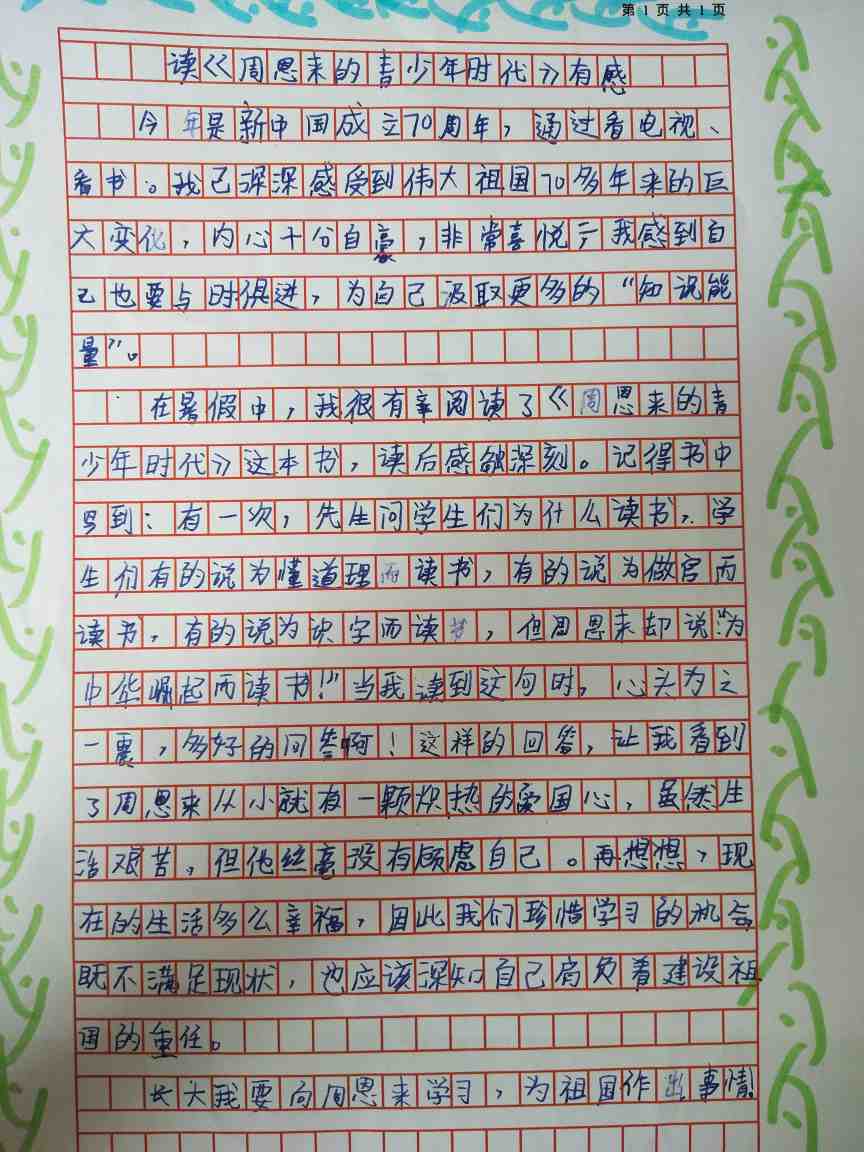 第1页 共1页
读《周恩来的青少年时代》有感
今年是新中国成立70周年，通过看电视、
看书。我已深深感受到伟大祖国70多年来的巨
大变化，内心十分自豪，非常喜悦，我感到自
己也要与时俱进，为自己汲取更多的“知识能
量”。
在暑假中，我很有幸阅读了《周恩来的青
少年时代》这本书，读后感触深刻。记得书中
写到：有一次，先生问学生们为什么读书，学
生们有的说为懂道理而读书，有的说为做官而
读书，有的说为识字而读书，但周恩来却说“为
中华崛起而读书！”当我读到这句时，心头为之
一震，多好的回答啊！这样的回答，让我看到
了周恩来从小就有一颗炽热的爱国心，虽然生
活艰苦，但他丝毫没有顾虑自己。再想想，现
在的生活多么幸福，因此我们珍惜学习的机会，
既不满足现状，也应该深知自己肩负着建设祖
国的重任。
长大我要向周恩来学习，为祖国作出事情！